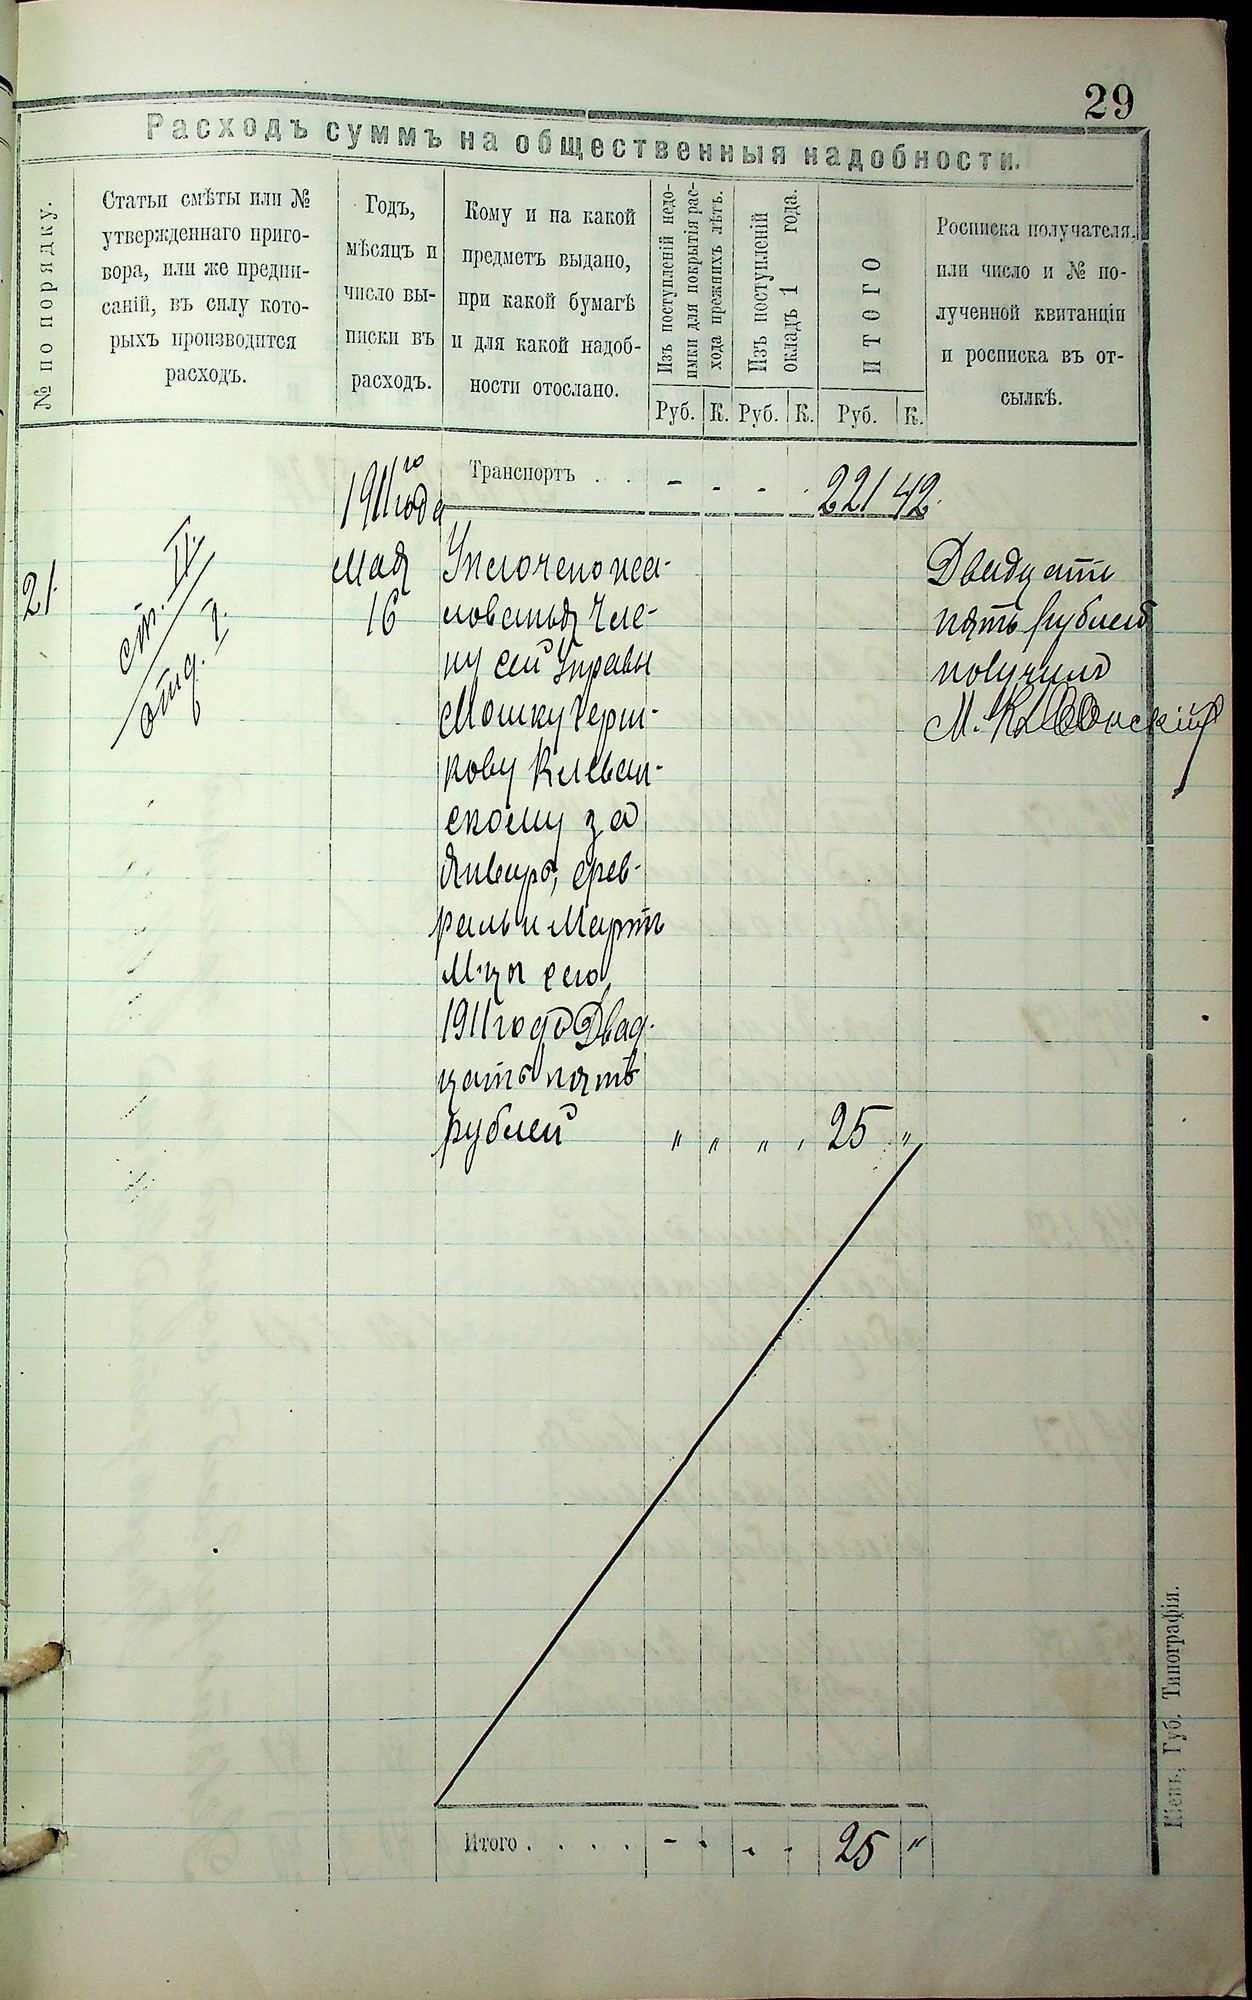 29
Расходъ суммъ на общественныя надобности.
№ по порядку.
Статьи смѣты или №
утвержденнаго приго-
вора, или же предпи-
саній, въ силу кото-
рыхъ производится
расходъ.
Годъ,
мѣсяцъ и
число вы-
писки въ
расходъ.
Кому и на какой
предметъ выдано,
при какой бумагѣ
и для какой надоб-
ности отослано.
Изъ поступленій недо-
имки для покрытія рас-
хода прежнихъ лѣтъ.
Изъ поступленій
окладъ 1 года.
ИТОГО
Росписка получателя,
или число и № по-
лученной квитанціи
и росписка въ от-
сылкѣ.
Руб. К. Руб. К. Руб. К.
1911го года
Транспортъ . . - - - . 221 42.
21.
ст. II.
отд. 2.
Мая
16
Уплочено жа-
лованья Чле-
ну сей Управы
Мошку Герш-
кову Клеван-
скому за
Январь, Фев-
раль и Мартъ
М-цы сего
1911 года Двад-
цать пять
рублей " " " , 25 "
Двадцать
пять рублей
получилъ
М. Клеванскій
Итого . . . . - . . . 25 "
Кіевъ, Губ. Типографія.